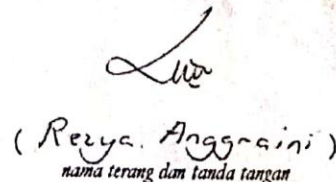 ( Rezya. Anggraini )
nama terang dan tanda tangan